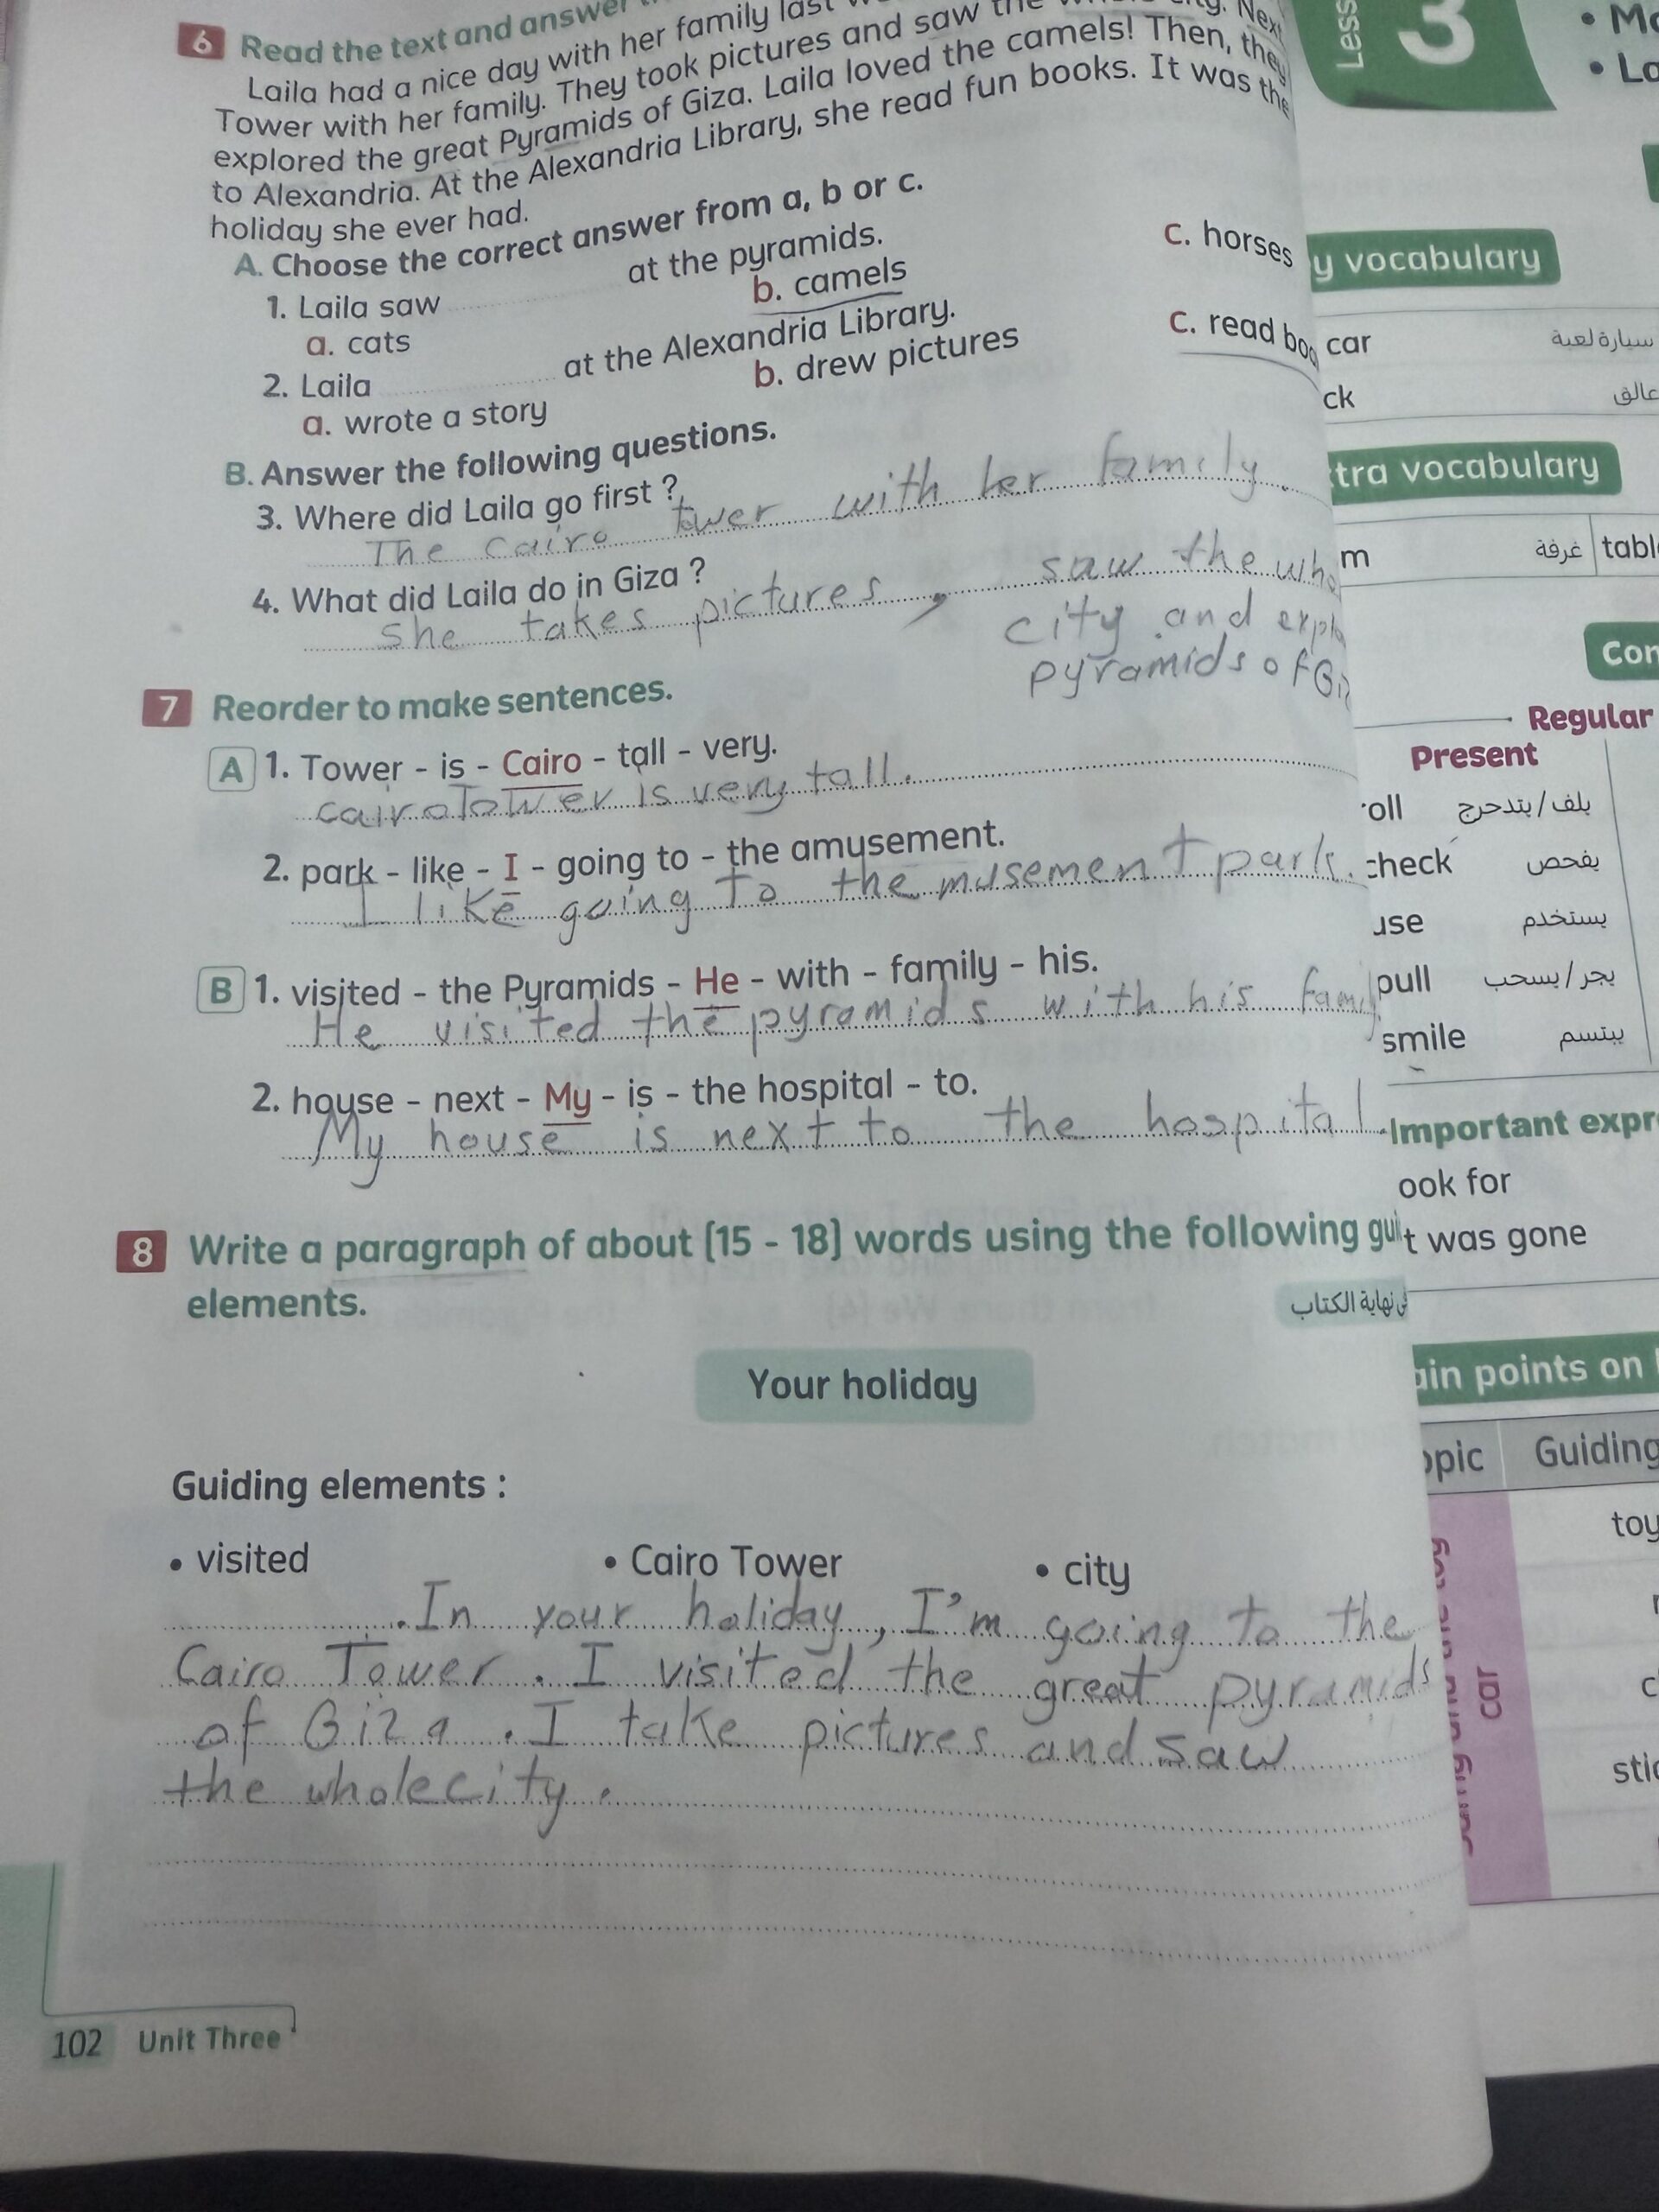 6 Read the text and answer
Laila had a nice day with her family last
Tower with her family. They took pictures and saw the city. Next
explored the great Pyramids of Giza. Laila loved the camels! Then, they
to Alexandria. At the Alexandria Library, she read fun books. It was the
holiday she ever had.
A. Choose the correct answer from a, b or c.
1. Laila saw at the pyramids.
a. cats b. camels c. horses
2. Laila at the Alexandria Library.
a. wrote a story b. drew pictures c. read
B. Answer the following questions.
3. Where did Laila go first ?
The cairo tower with her family.
4. What did Laila do in Giza ?
she takes pictures, saw the
city and
pyramids of
7 Reorder to make sentences.
A 1. Tower - is - Cairo - tall - very.
cairo Tower is very tall.
2. park - like - I - going to - the amusement.
I like going to the musement park.
B 1. visited - the Pyramids - He - with - family - his.
He visited the pyramids with his
2. house - next - My - is - the hospital - to.
My house is next to the hospital.
8 Write a paragraph of about (15 - 18) words using the following
elements.
نهاية الكتاب
Your holiday
Guiding elements :
• visited • Cairo Tower • city
.In your holiday, I'm going to the
Cairo Tower. I visited the great pyramids
of Giza. I take pictures and saw
the whole city.
102 Unit Three
Less
3
y vocabulary
car سيارة لعبة
ck عالق
tra vocabulary
m غرفة
Regular
Present
oll يلف/يتدحرج
check يفحص
use يستخدم
pull يجر/يسحب
smile يبتسم
Important
ook for
t was gone
points on
Guiding
toy
car